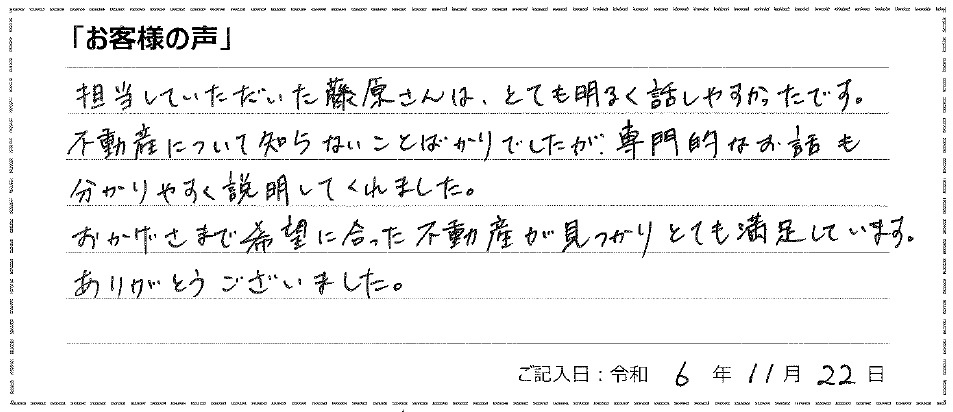 「お客様の声」
担当していただいた藤原さんは、とても明るく話しやすかったです。
不動産について知らないことばかりでしたが、専門的なお話も
分かりやすく説明してくれました。
おかげさまで希望に合った不動産が見つかりとても満足しています。
ありがとうございました。
ご記入日：令和 6 年 11 月 22 日